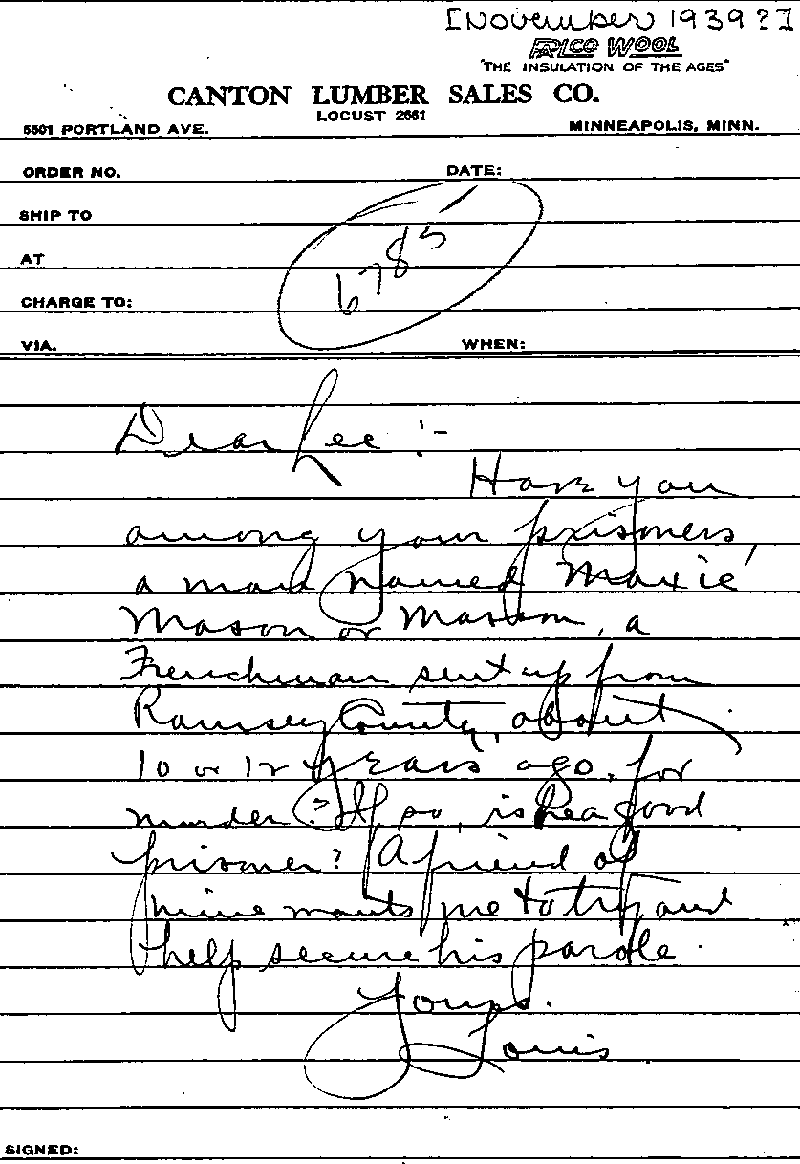 [November 1939?]
PALCO WOOL
"THE INSULATION OF THE AGES"
CANTON LUMBER SALES CO.
LOCUST 2661
5501 PORTLAND AVE. MINNEAPOLIS, MINN.
ORDER NO. DATE:
SHIP TO
AT
6785
CHARGE TO:
VIA. WHEN:
Dear Lee :-
Have you
among your prisoners,
a man named Maxie
Mason or Masson, a
Frenchman sent up from
Ramsey County, about
10 or 12 years ago, for
murder? If so, is he a good
prisoner? A friend of
mine wants me to try and
help secure his parole.
Yours.
Louis
SIGNED: